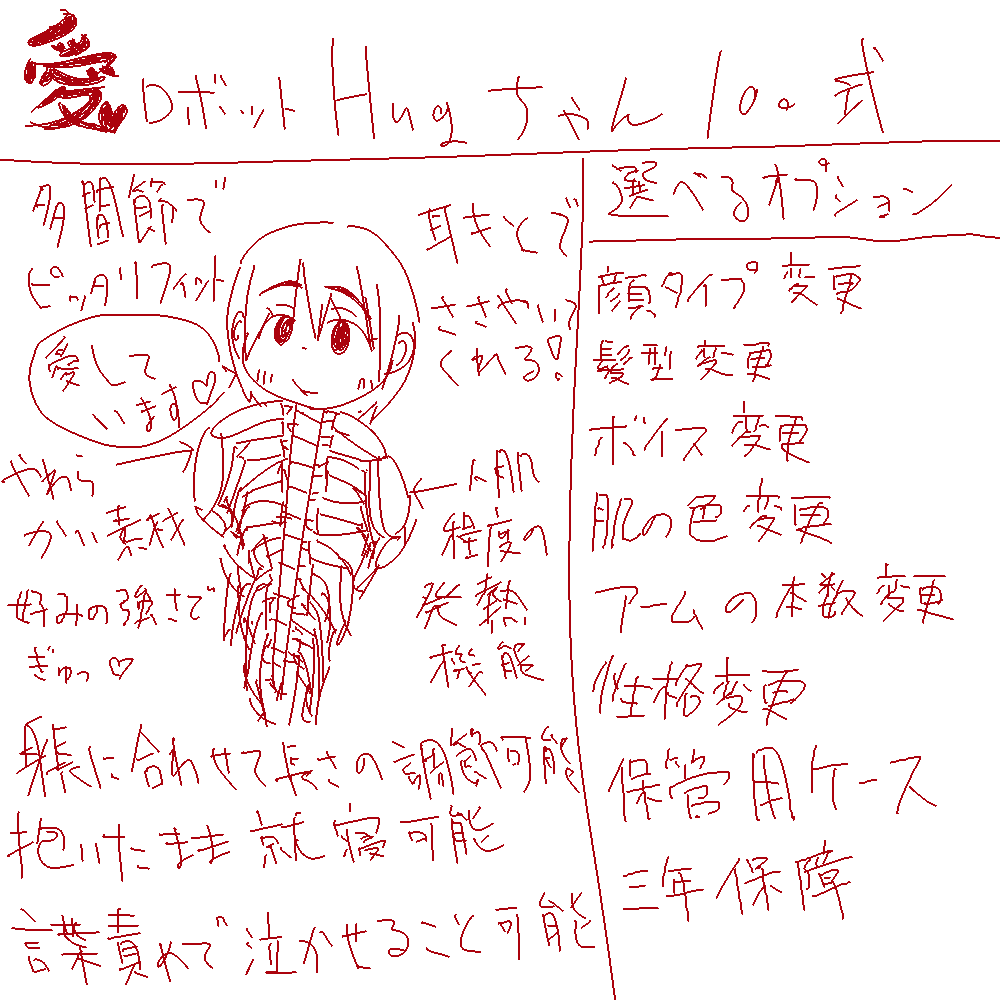 愛ロボットHugちゃん100式
多間節で
ピッタリフィット
愛して
います♡
やわら
かい素材
好みの強さで
ぎゅっ♡
耳もとで
ささやいて
くれる!
人肌
程度の
発熱
機能
身長に合わせて長さの調節可能
抱いたまま就寝可能
言葉責めで泣かせること可能
選べるオプション
顔タイプ変更
髪型変更
ボイス変更
肌の色変更
アームの本数変更
性格変更
保管用ケース
三年保障